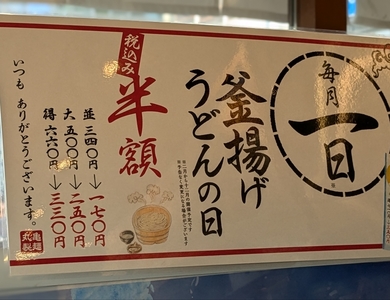 毎月
一日
釜揚げ
うどんの日
税込み
半額
並 三四〇円→一七〇円
大 五〇〇円→二五〇円
得 六六〇円→三三〇円
いつも ありがとうございます。
丸亀
製麺